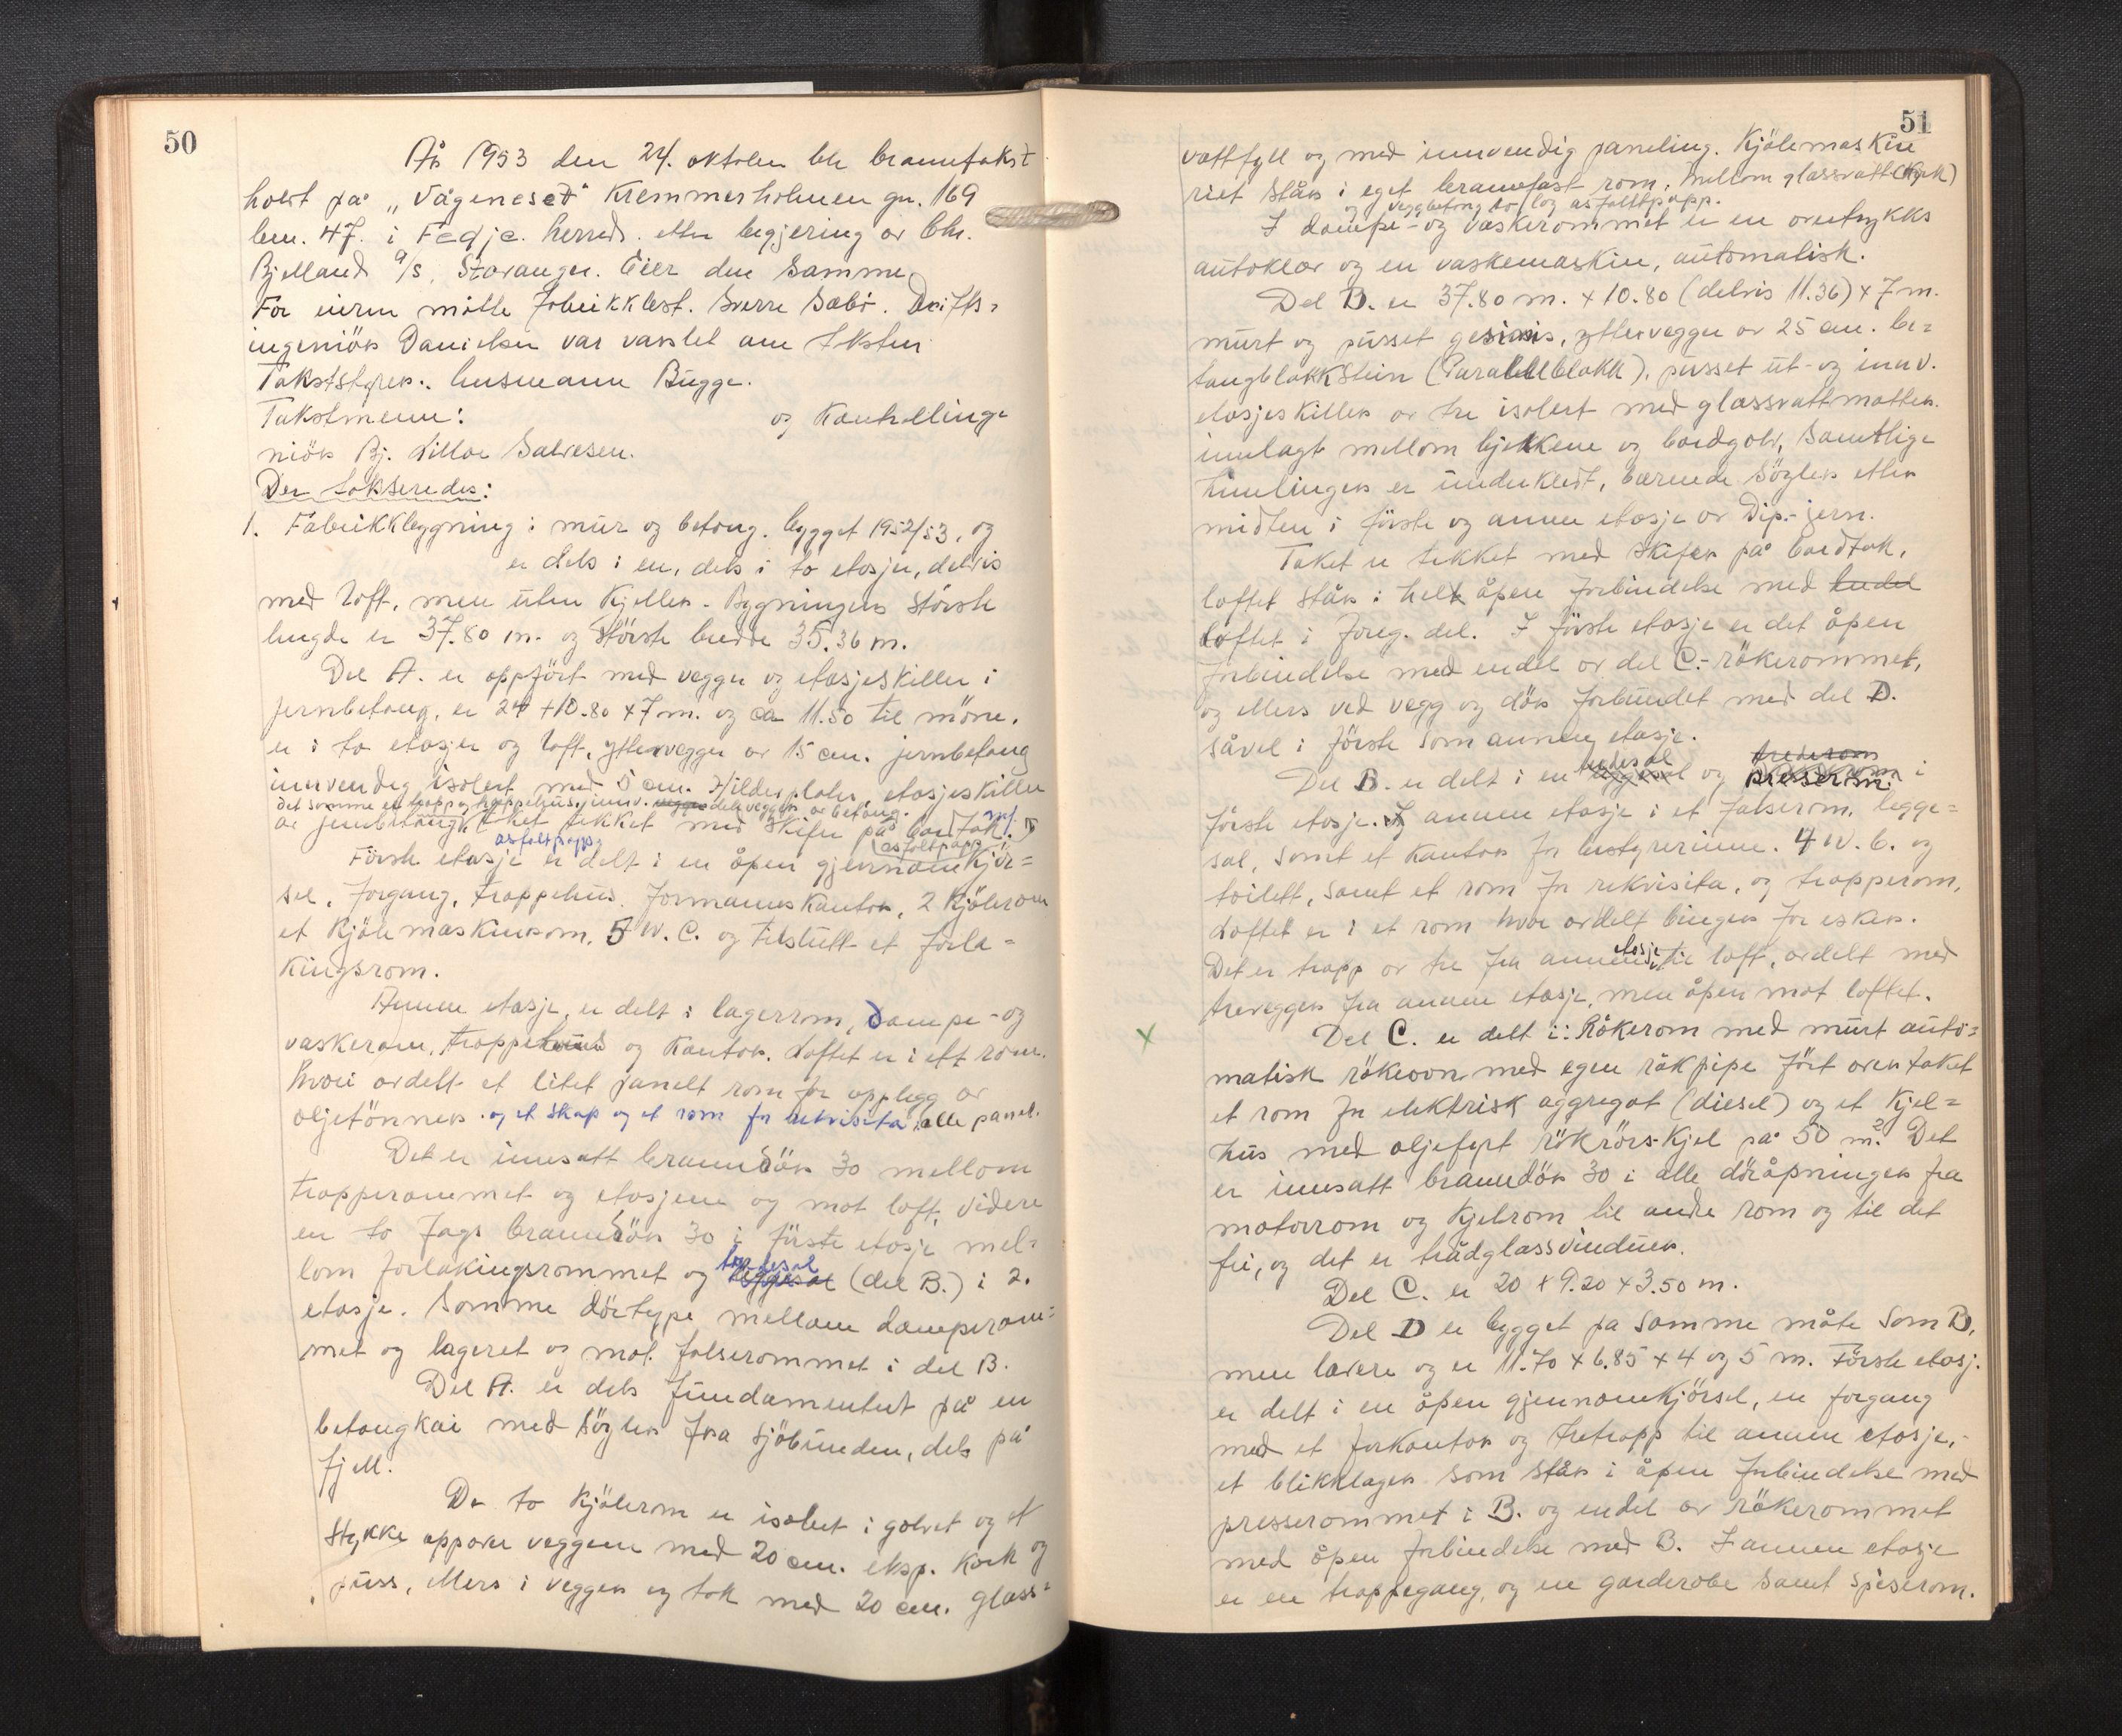 50
År 1953 den 24. oktober ble branntakst
holdt på „Vågeneset" Kremmerholmen gn. 169
bnr. 47. i Fedje herred. etter begjering av Chr.
Bjelland A/S, Stavanger. Eier den samme.
For eieren møtte fabrikkbest. Sverre Sæbö. Drifts-
ingeniör Danielsen var varslet om taksten
Takststyrer: lensmann Bugge.
Takstmenn: og Kontrolinge-
niör Bj. Lilloe Salvesen.
Der takseredes:
1. Fabrikkbygning i mur og betong. bygget 1952/53, og
er dels i en, dels i to etasjer, delvis
med loft, men uten kjeller. Bygningens störste
lengde er 37.80 m. og störste bredde 35.36 m.
Del A. er oppfört med vegger og etasjeskiller i
jernbetong, er 24 + 10.80 x 7 m. og ca 11.50 til möne.
er i to etasjer og loft, yttervegger av 15 cm. jernbetong
innvendig isolert med 5 cm. plater, etasjeskiller
det samme er trapp og trappehus, innv. delevegger av betong.
av jernbetong. Taket tekket med skifer på bordtak.
asfaltpapp
Förste etasje er delt i en åpen gjennomkjör-
sel, forgang, trappehus, formannskontor, 2 kjölerom
et kjölemaskinrom, 5 W.C. og tilslutt et forla-
kingsrom.
Annen etasje, er delt i lagerrom, dampe- og
vaskerom, trappehus og kontor. Loftet er i ett rom.
hvori avdelt et litet panelt rom for opplegg av
oljetönner. og et skap og et rom for rekvisita, alle panel.
Det er innsatt branndör 30 mellom
trapperommet og etasjene og mot loft, videre
en to fags branndör 30 i förste etasje mel-
lom forlakingsrommet og leggesal (del B.) i 2.
etasje. Samme dörtype mellom damperom-
met og lageret og mot falserommet i del B.
Del A. er dels fundamentert på en
betongkai med söyler fra sjöbunden, dels på
fjell.
De to kjölerom er isolert i golvet og et
stykke oppover veggene med 20 cm. eksp. kork og
puss, ellers i vegger og tak med 20 cm. glass-
51
vattfyll og med innvendig paneling. Kjölemaskine
riet står i eget brannfast rom. Mellom glassvatt (kork)
og veggbetong to lag asfaltpapp.
I dampe- og vaskerommet er en overtrykks
autoklav og en vaskemaskin, automatisk.
Del B. er 37.80 m. x 10.80 (delvis 11.36) x 7 m.
murt og pusset gesims, yttervegger av 25 cm. be-
tongblokkstein (Parallellblokk), pusset ut- og innv.
etasjeskiller av tre isolert med glassvattmatter
innlagt mellom bjelkene og bordgolv, samtlige
himlinger er underkledt, bærende söyler etter
midten i förste og annen etasje av Dip.-jern.
Taket er tekket med skifer på bordtak,
loftet står i helt åpen forbindelse med
loftet i foreg. del. I förste etasje er det åpen
forbindelse med endel av del C.- rökerommet,
og ellers ved vegg og dör forbundet med del D.
såvel i förste som annen etasje.
Del B. er delt i en tredesal og presserom i
förste etasje. I annen etasje i et falserom, legge-
sal, samt et kontor for bestyrerinne. 4 W.C. og
toilett, samt et rom for rekvisita, og trapperom,
Loftet er i et rom hvor avdelt binger for esker.
Det er trapp av tre fra annen etasje til loft, avdelt med
trevegger fra annen etasje, men åpen mot loftet.
x Del C. er delt i: Rökerom med murt auto-
matisk rökeovn med egen rökpipe fört over taket
et rom for elektrisk aggregat (diesel) og et kjel-
hus med oljefyrt rökrörskjel på 50 m². Det
er innsatt branndör 30 i alle döråpninger fra
motorrom og kjelrom til andre rom og til det
fri, og det er trådglassvinduer.
Del C. er 20 x 9.20 x 3.50 m.
Del D er bygget på samme måte som B,
men lavere og er 11.70 x 6.85 x 4 og 5 m. Förste etasj.
er delt i en åpen gjennomkjörsel, en forgang
med et forkontor og tretrapp til annen etasje,
et blikklager som står i åpen forbindelse med
presserommet i B. og endel av rökerommet
med åpen forbindelse med B. I annen etasje
er en trappegang, og en garderobe samt spiserom.